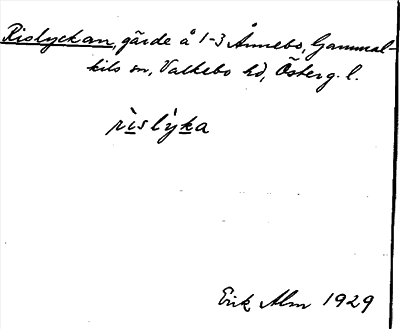 Rislyckan, gärde å 1-3 Ånnebo, Gammal-
kils sn, Valkebo hd, Österg. l.
rìslỳka
Erik Alm 1929